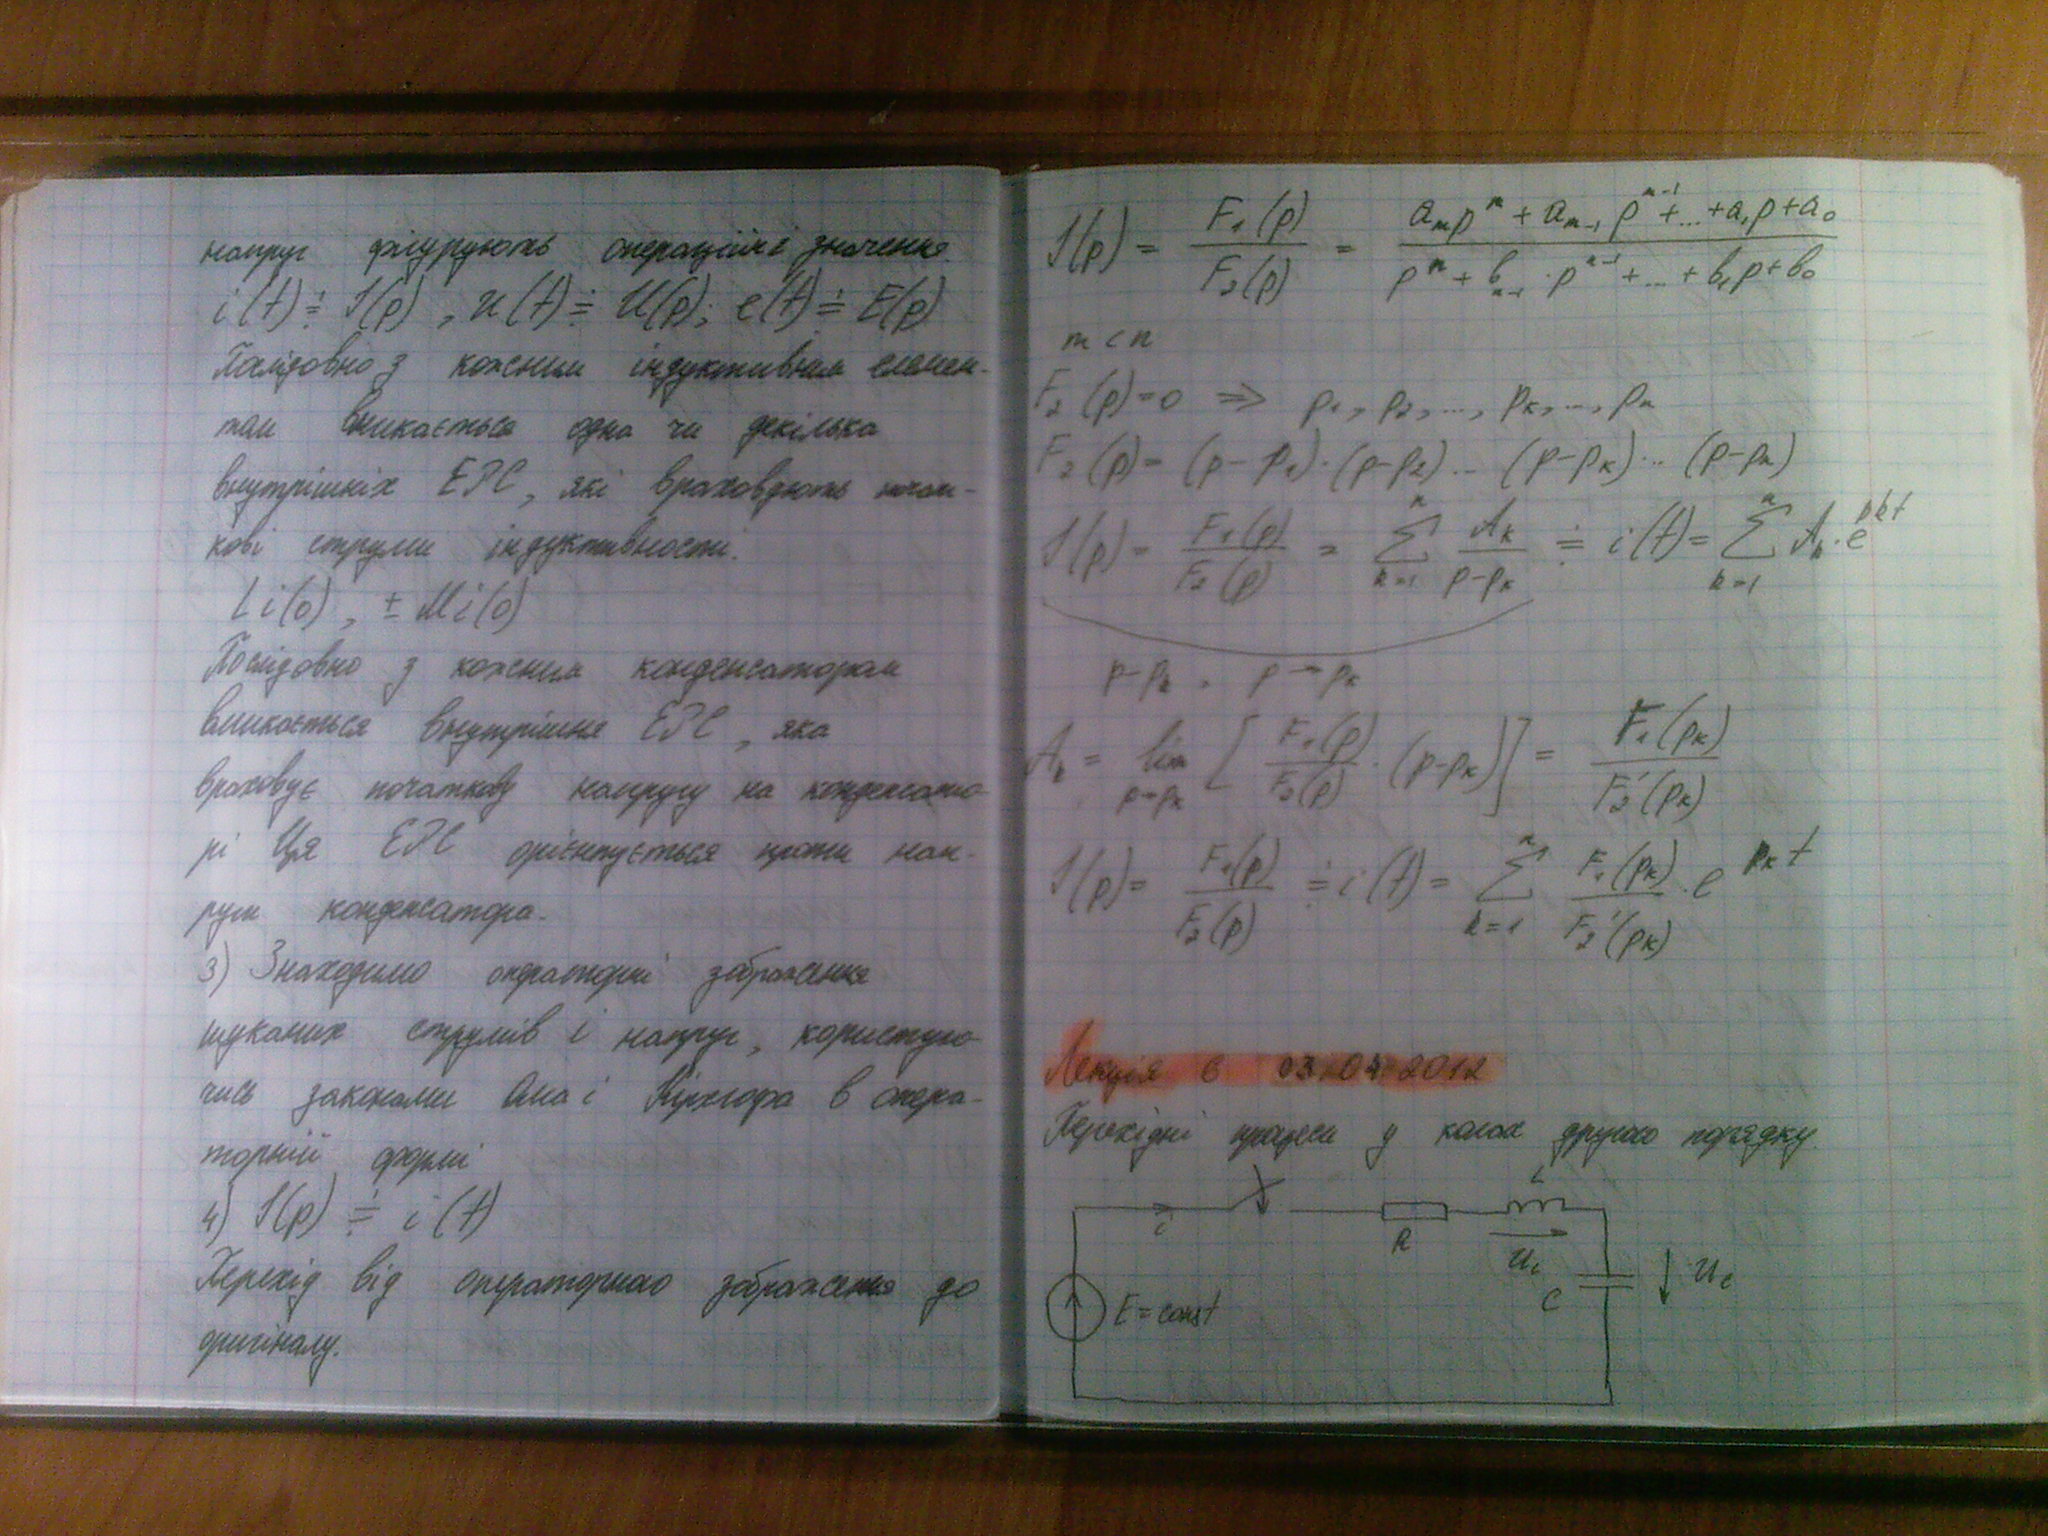 напруг фігурують операційні значення.
i(t) ≓ I(p), u(t) ≓ U(p); e(t) ≓ E(p)
Послідовно з кожним індуктивним елемен-
том вмикається одна чи декілька
внутрішніх ЕРС, які враховують почат-
кові струми індуктивності.
Li(0), ± Mi(0)
Послідовно з кожним конденсатором
вмикається внутрішня ЕРС, яка
враховує початкову напругу на конденсато-
рі Ця ЕРС орієнтується проти нап-
руги конденсатора.
3) Знаходимо операторні зображення
шуканих струмів і напруг, користую-
чись законами Ома і Кірхгофа в опера-
торній формі
4) I(p) ≓ i(t)
Перехід від операторного зображення до
оригіналу.
I(p) = F₁(p)/F₂(p) = (aₘpᵐ + aₘ₋₁pᵐ⁻¹ + ... + a₁p + a₀)/(pⁿ + bₙ₋₁·pⁿ⁻¹ + ... + b₁p + b₀)
m < n
F₂(p)=0 ⇒ p₁, p₂, ..., pₖ, ..., pₙ
F₂(p) = (p-p₁)·(p-p₂)... (p-pₖ)... (p-pₙ)
I(p) = F₁(p)/F₂(p) = Σₖ₌₁ⁿ Aₖ/(p-pₖ) ≓ i(t) = Σₖ₌₁ⁿ Aₖ·e^(pₖt)
p-pₖ, p→pₖ
Aₖ = lim p→pₖ [F₁(p)/F₂(p) · (p-pₖ)] = F₁(pₖ)/F₂'(pₖ)
I(p) = F₁(p)/F₂(p) ≓ i(t) = Σₖ₌₁ⁿ F₁(pₖ)/F₂'(pₖ) · e^(pₖt)
Лекція 6 03.04.2012
Перехідні процеси у колах другого порядку.
L
i
R
u_L
C
u_c
E = const